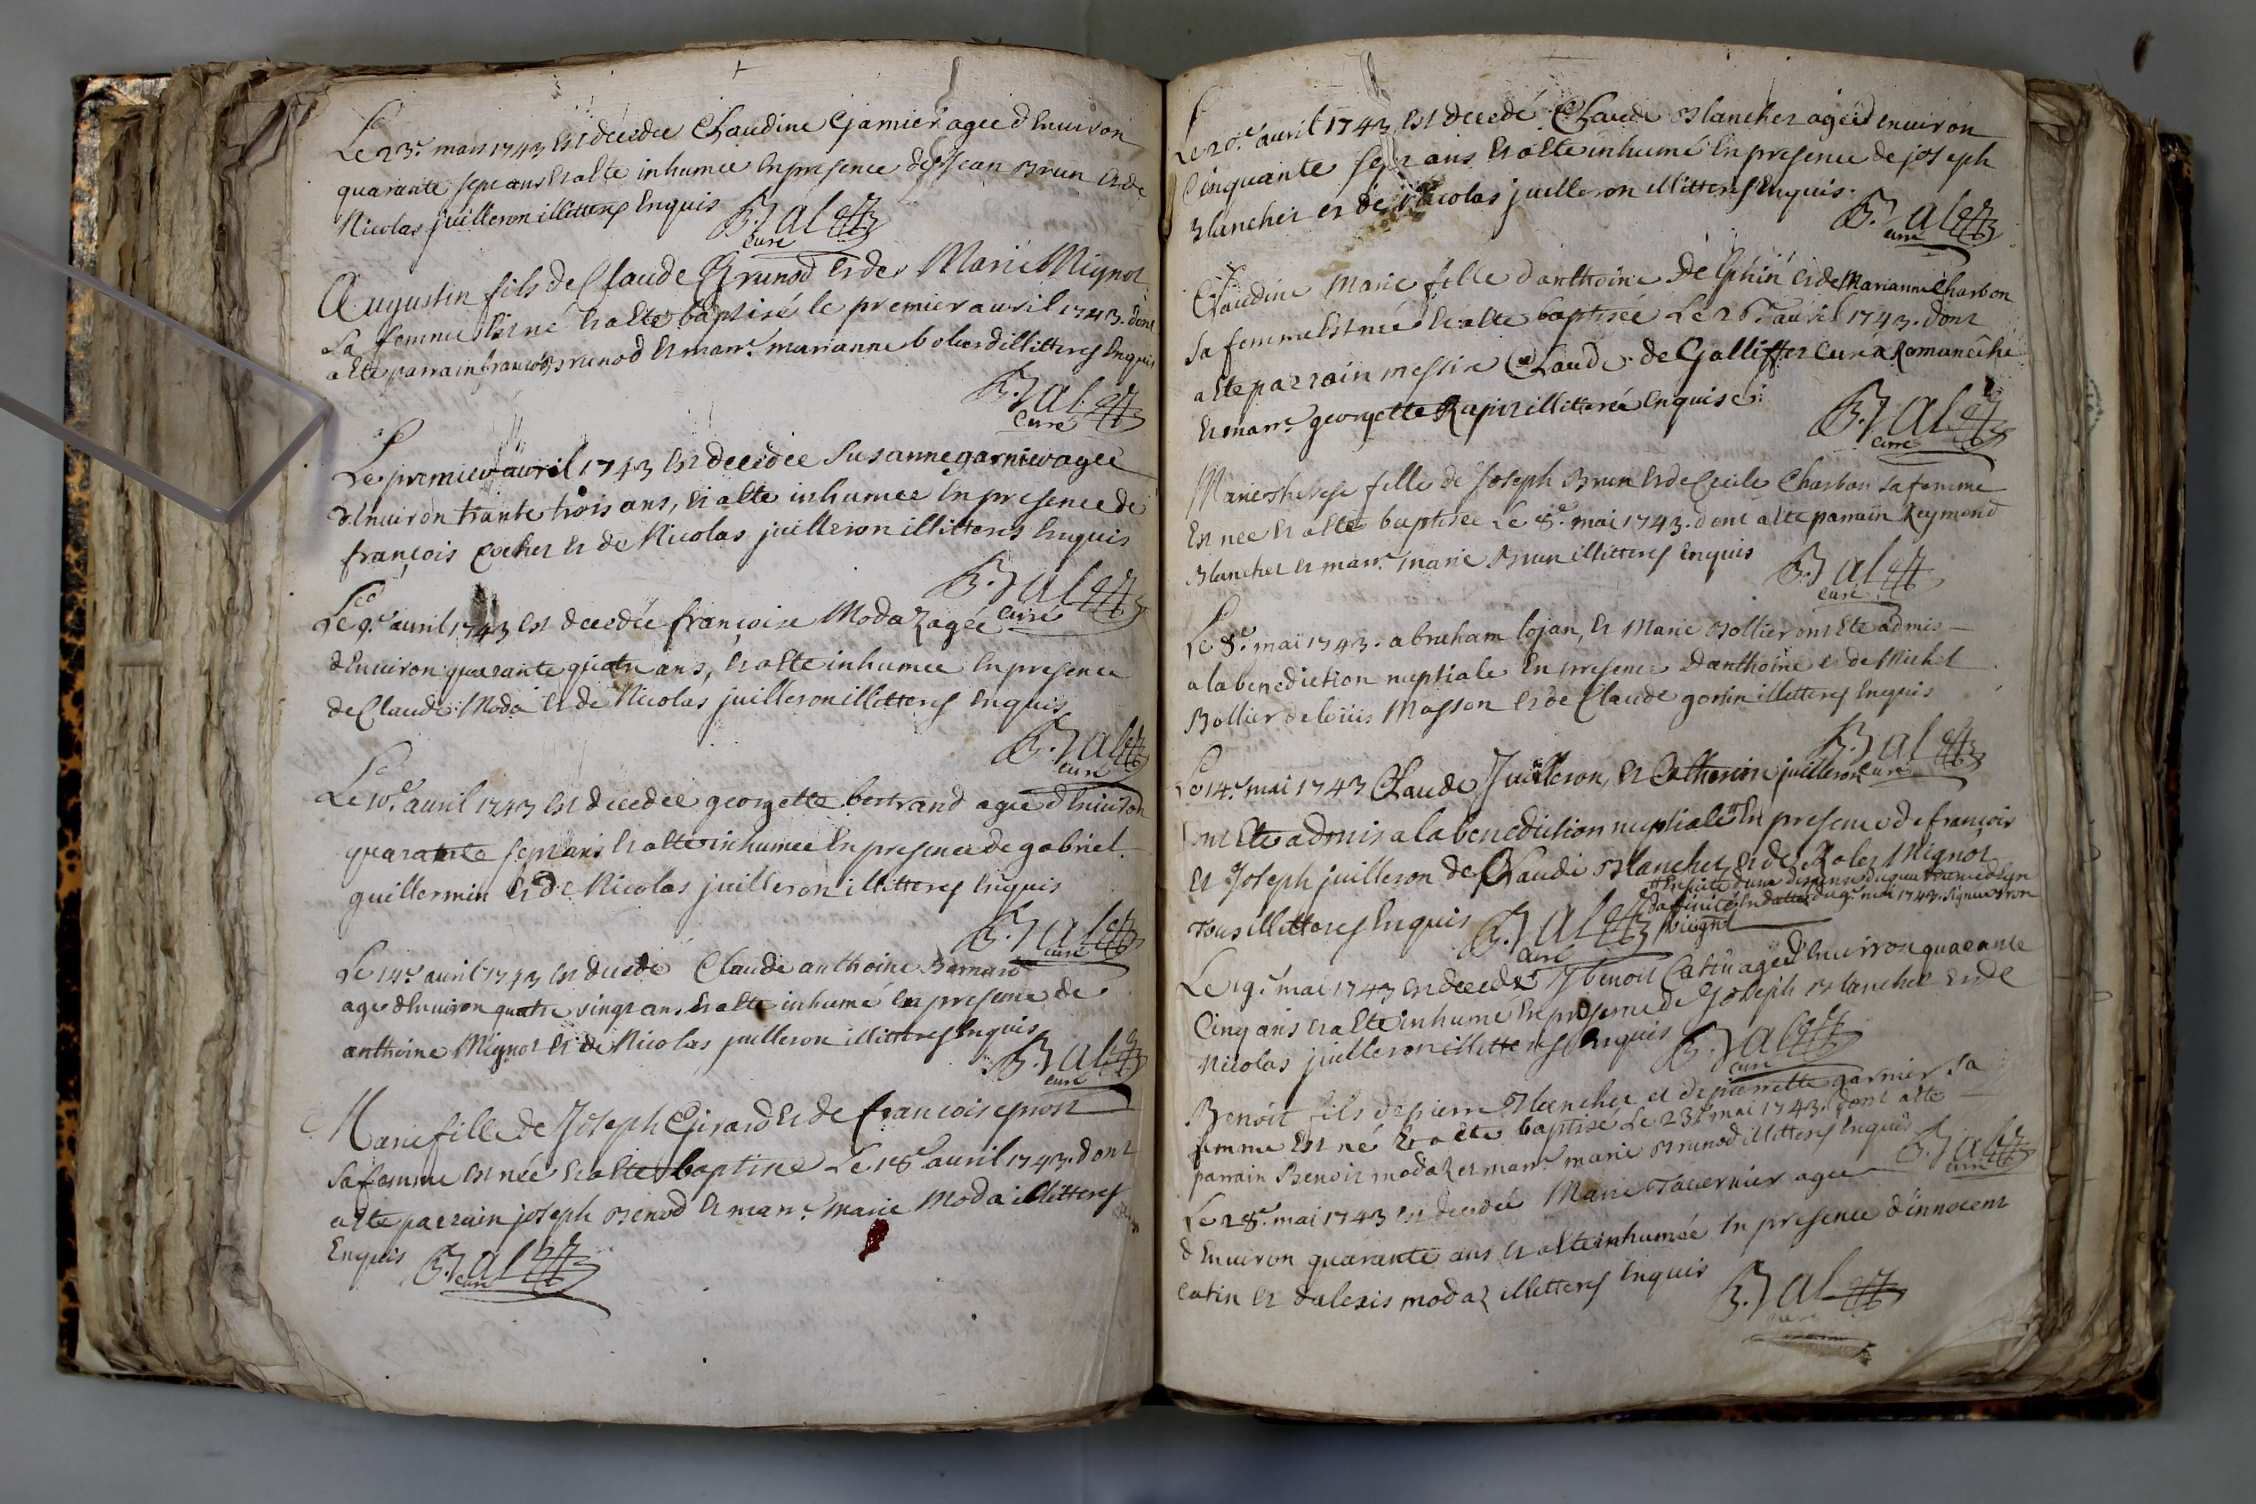 Le 23e. mars 1743 est decedée Claudine Garnier agée d'Environ
quarante sept ans Et a Ete inhumée En presence de Jean Brun Et de
Nicolas juilleron illitterés Enquis B. Jal
curé
Augustin fils de Claude Brunod Et de Marie Mignot
Sa femme Est né Et a Ete baptisé le premier avril 1743. dont
a Ete parrain françois Brunod Et marr.e marianne illitterés Enquis
B. Jal
curé
Le premier avril 1743 est decedée Susanne garnier agée
d'Environ trante trois ans, Et a Ete inhumée En presence de
françois Et de Nicolas juilleron illitterés Enquis
B. Jal
curé
Le 9e. avril 1743 est decedée françoise Modaz agée
d'Environ quarante quatre ans, Et a Ete inhumée En presence
de Claude Moda Et de Nicolas juilleron illitterés Enquis
B. Jal
curé
Le 10e. avril 1743 est decedée georgette bertrand agée d'Environ
quarante sept ans Et a Ete inhumée En presence de gabriel
guillermin Et de Nicolas juilleron illitterés Enquis
B. Jal
curé
Le 14e. avril 1743 est decedé Claude anthoine Bernard
agé d'Environ quatre vingt ans Et a Ete inhumé En presence de
anthoine Mignot Et de Nicolas juilleron illitterés Enquis
B. Jal
curé
Marie fille de Joseph Girard Et de francoise prost
Sa femme Est née Et a Ete baptisée Le 18e avril 1743. dont
a Ete parrain joseph Benod Et marr.e marie Moda illitterés
Enquis B. Jal
curé
Le 20e. avril 1743 est decedé Claude Blanchet agé d'environ
Cinquante sept ans Et a Ete inhumé En presence de joseph
Blanchet et de Nicolas juilleron illitterés Enquis.
B. Jal
curé
Claudine Marie fille d'anthoine Delphin Et de Marianne Charbon
Sa femme Est née Et a Ete baptisée Le 26e. avril 1743. dont
a Ete parrain messire Claude de Galliffet Curé a Romaneche
Et marr.e georgette Rapit illitterée Enquise.
B. Jal
curé
Marie therese fille de Joseph Brun Et de Cecile Charbon Sa femme
Est née Et a Ete baptisée Le 8e. mai 1743. dont a Ete parrain Reymond
Blanchet Et marr.e marie Brun illitterés Enquis B. Jal
curé
Le 8e. mai 1743. abraham lojan, Et Marie Bollier ont Ete admis
a la benediction nuptiale En presence d'anthoine et de Michel
Bollier de loüis Masson Et de Claude gonin illitterés Enquis
B. Jal
curé
Le 14e. mai 1743 Claude Juilleron, Et Catherine juilleron
ont Ete admis a la benediction nuptiale # En presence de françois
Et Joseph juilleron de Claude Blanchet Et de Mignot
Tous illitterés Enquis B. Jal
curé
# Ensuite d'une dispense du quatrieme degré
d'affinité En datte du 9e. mai 1743. signée
Le 19e. mai 1743 est decedé benoit Catin agé d'Environ quarante
Cinq ans Et a Ete inhumé En presence de Joseph Blanchet Et de
Nicolas juilleron illitterés Enquis B. Jal
curé
Benoit fils de pierre Blanchet et de pierrette garnier Sa
femme Est né Et a Ete baptisé Le 23e. mai 1743. dont a Ete
parrain Benoit modaz et marr.e marie Brunod illitterés Enquis B. Jal
curé
Le 28e. mai 1743 est decedée Marie Tavernier agée
d'Environ quarante ans Et a Ete inhumée En presence d'innocent
Catin Et d'alexis modaz illitterés Enquis B. Jal
curé